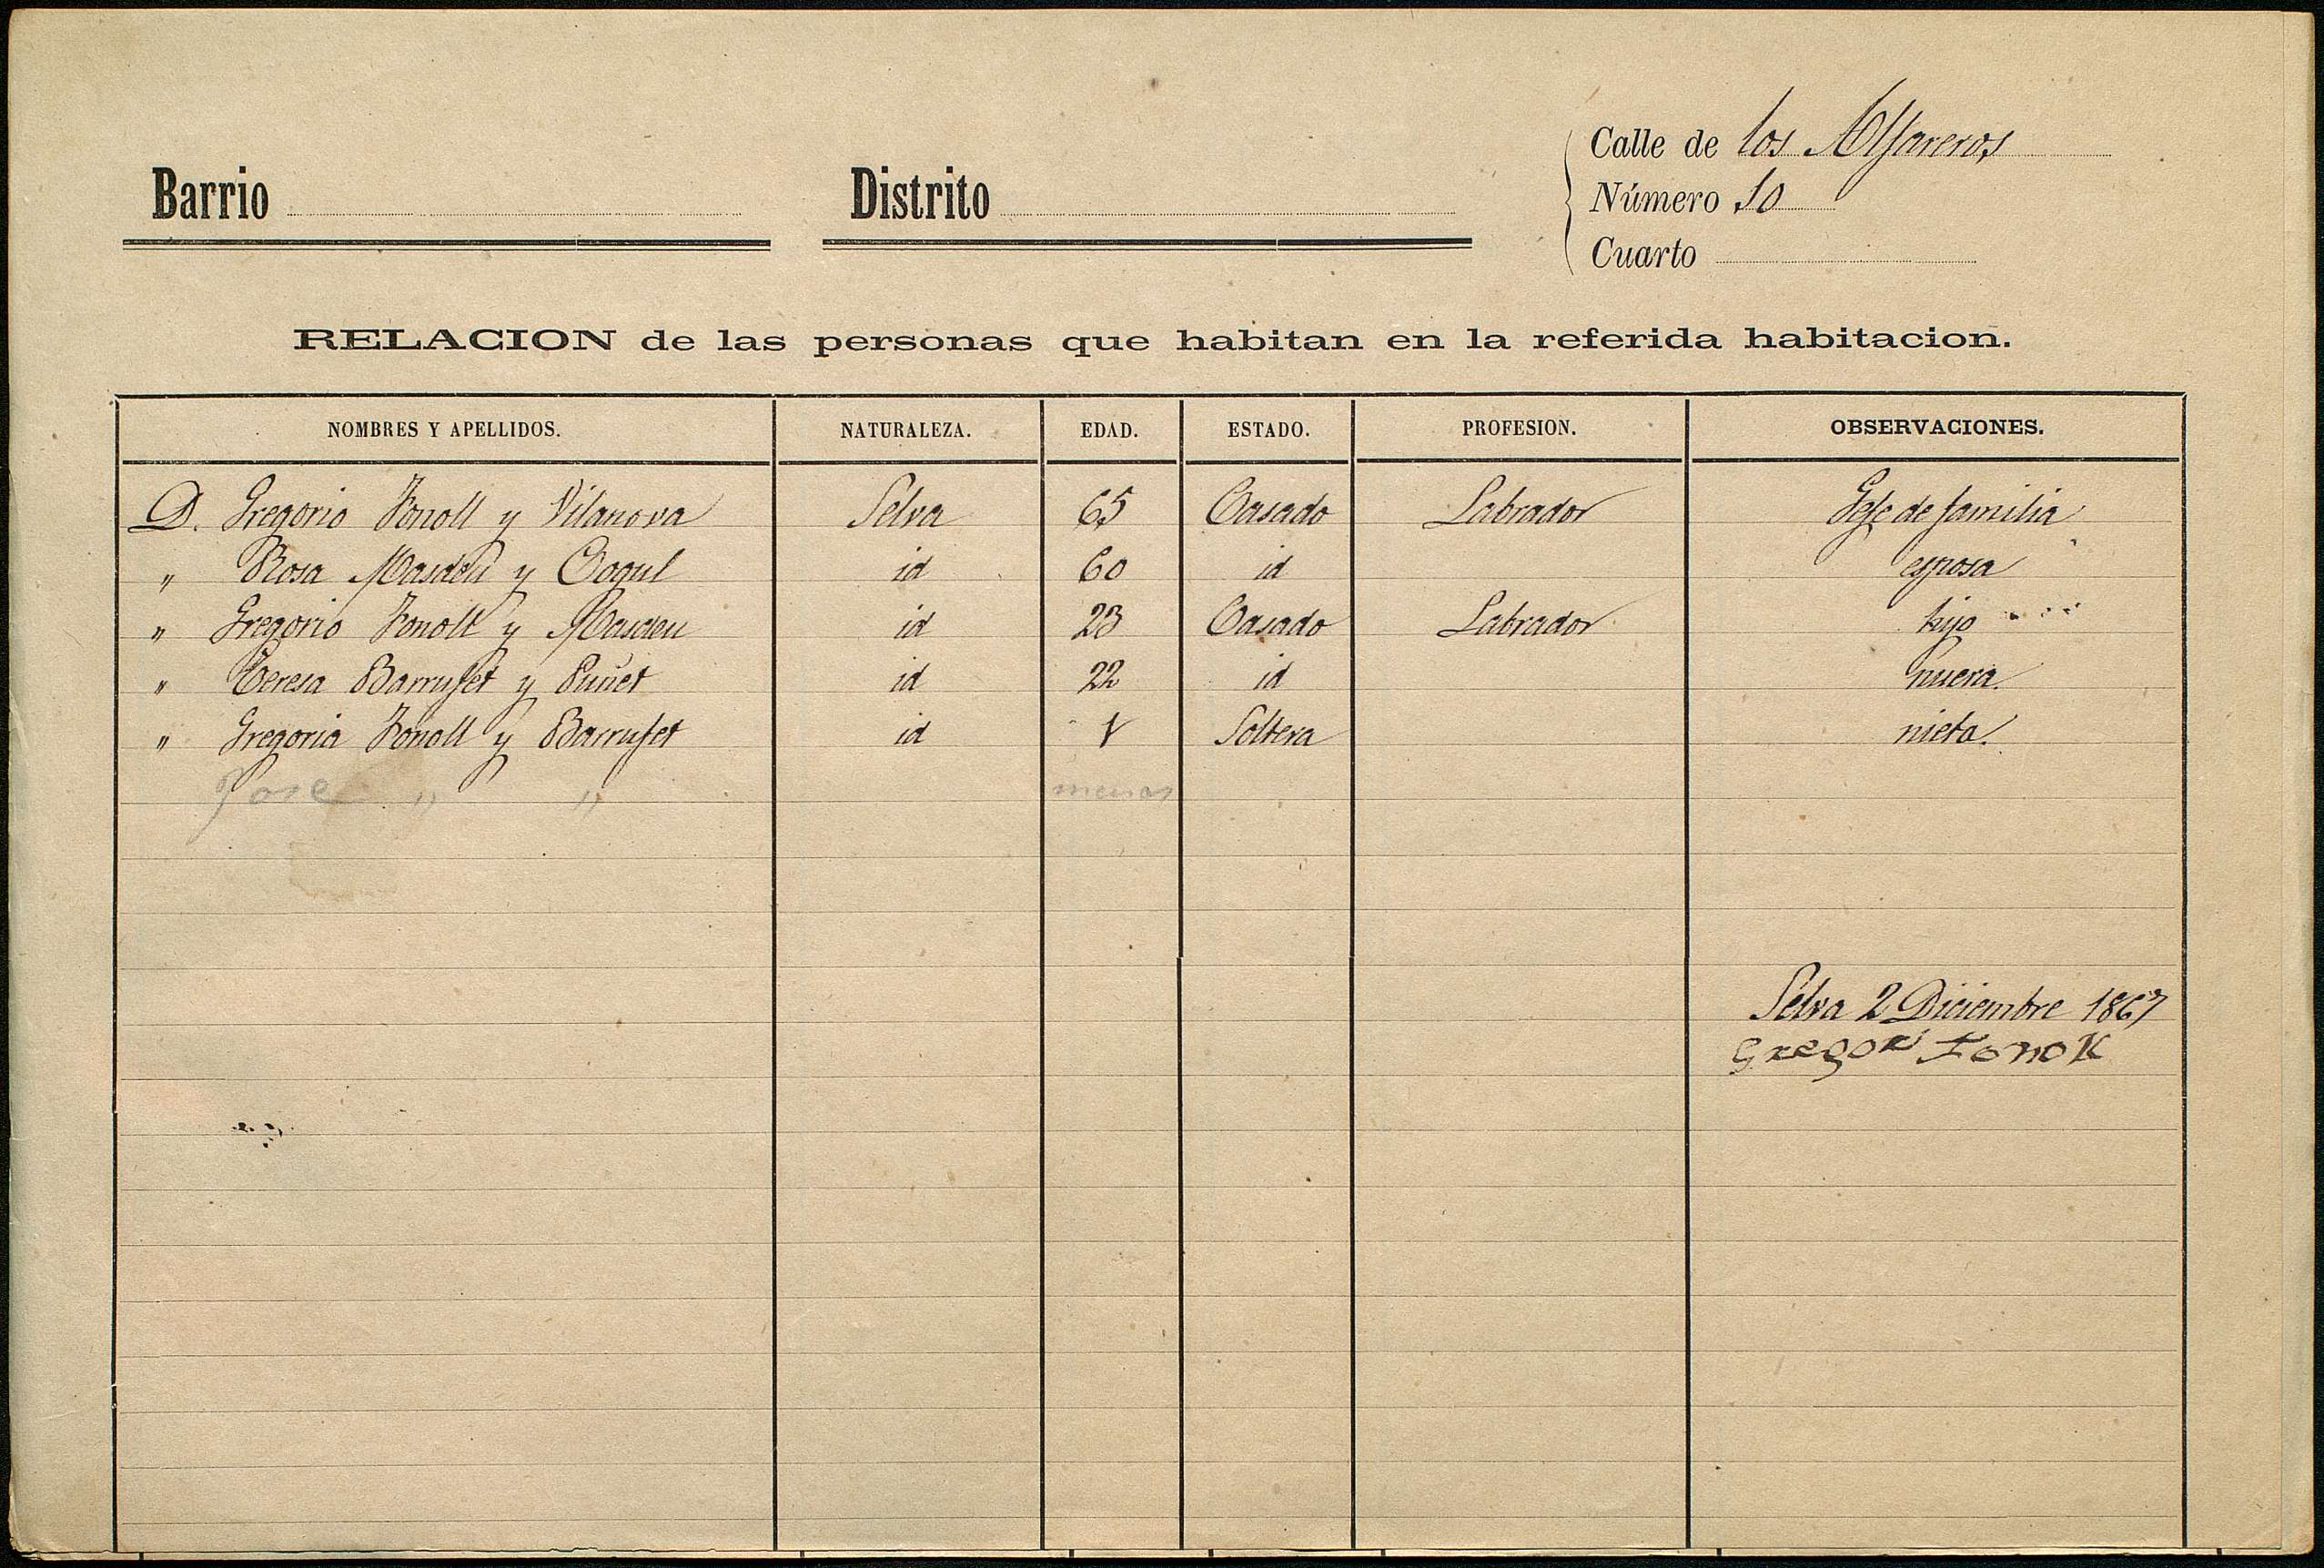 Barrio
Distrito
Calle de los Alfareros
Número 10
Cuarto
RELACION de las personas que habitan en la referida habitacion.
NOMBRES Y APELLIDOS. NATURALEZA. EDAD. ESTADO. PROFESION. OBSERVACIONES.
D. Gregorio Fonoll y Vilanova Selva 65 Casado Labrador Gefe de familia
" Rosa Masdeu y Cogul id 60 id esposa
" Gregorio Fonoll y Masdeu id 23 Casado Labrador hijo
" Teresa Barrufet y id 22 id nuera.
" Gregoria Fonoll y Barrufet id 1 Soltera nieta.
Jose " " meses
Selva 2 Diciembre 1867
Gregori Fonoll